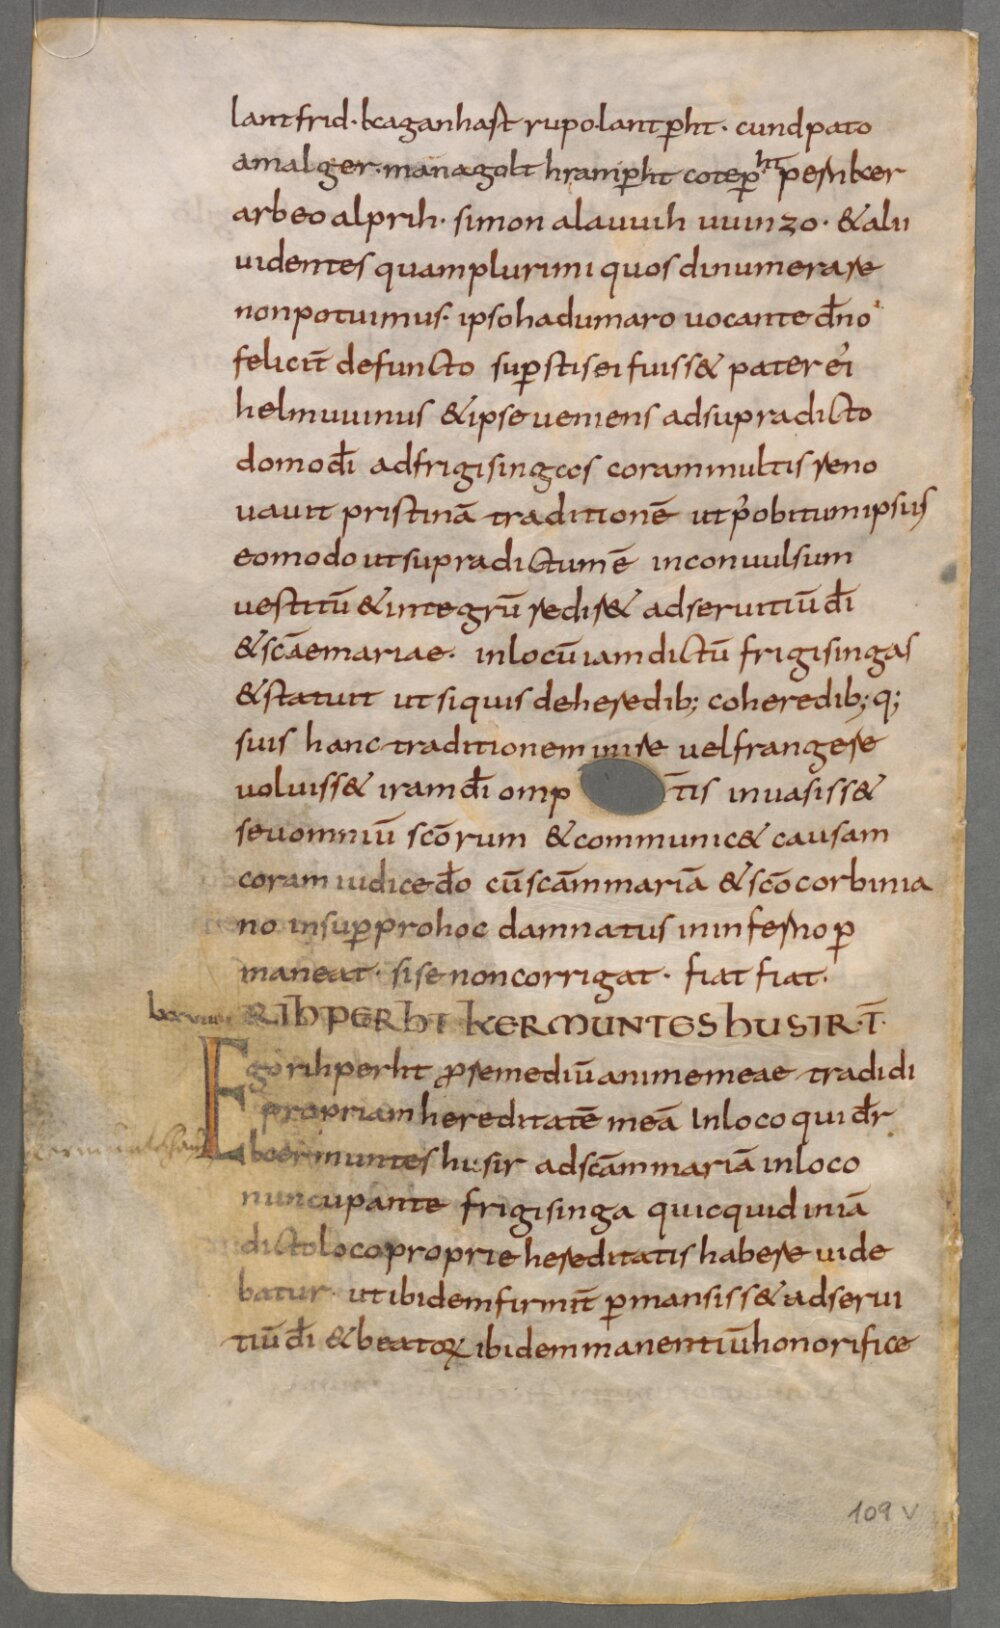 lantfrid· kaganhast rupo·lantp̄ht· cundpato
amalger·managolt hramp̄ht cotep̄ht pernker
arbeo alprih· simon alauuih uuinzo· & alii
uidentes quamplurimi quos dinumerare
non potuimus· ipso hadumaro uocante dn̄o
felicit̄ defuncto sup̄stis ei fuiss& pater ei
helmuuinus & ipse ueniens ad supradicto
domo dī ad frigisingas coram multis reno
uauit pristinā traditionē ut p̄ obitum ipsius
eo modo ut supradictum ē inconuulsum
uestitū & integrū redir& ad seruitiū dī
& scāe mariae· in locū iam dictū frigisingas
& statuit ut si quis de heredib; coheredib;q;
suis hanc traditionem inire uel frangere
uoluiss& iram dī omp t̄is inuasiss&
seu omniū scōrum & communic& causam
coram iudice dō cū scām mariā & scō corbinia
no insup̄ pro hoc damnatus in inferno p̄
maneat· si se non corrigat· fiat fiat·
RIHPERHT KERMUNTESHUSIR·T̄·
Ego rihperht p̄ remediū anime meae tradidi
propriam hereditatē meā In loco qui dr̄
kermunteshusir ad scām mariā in loco
nuncupante frigisinga quicquid in iā
dicto loco proprie hereditatis habere uide
batur· ut ibidem firmit̄ p̄mansiss& ad serui
tiū dī & beatoꝝ ibidem manentiū honorifice
109 v